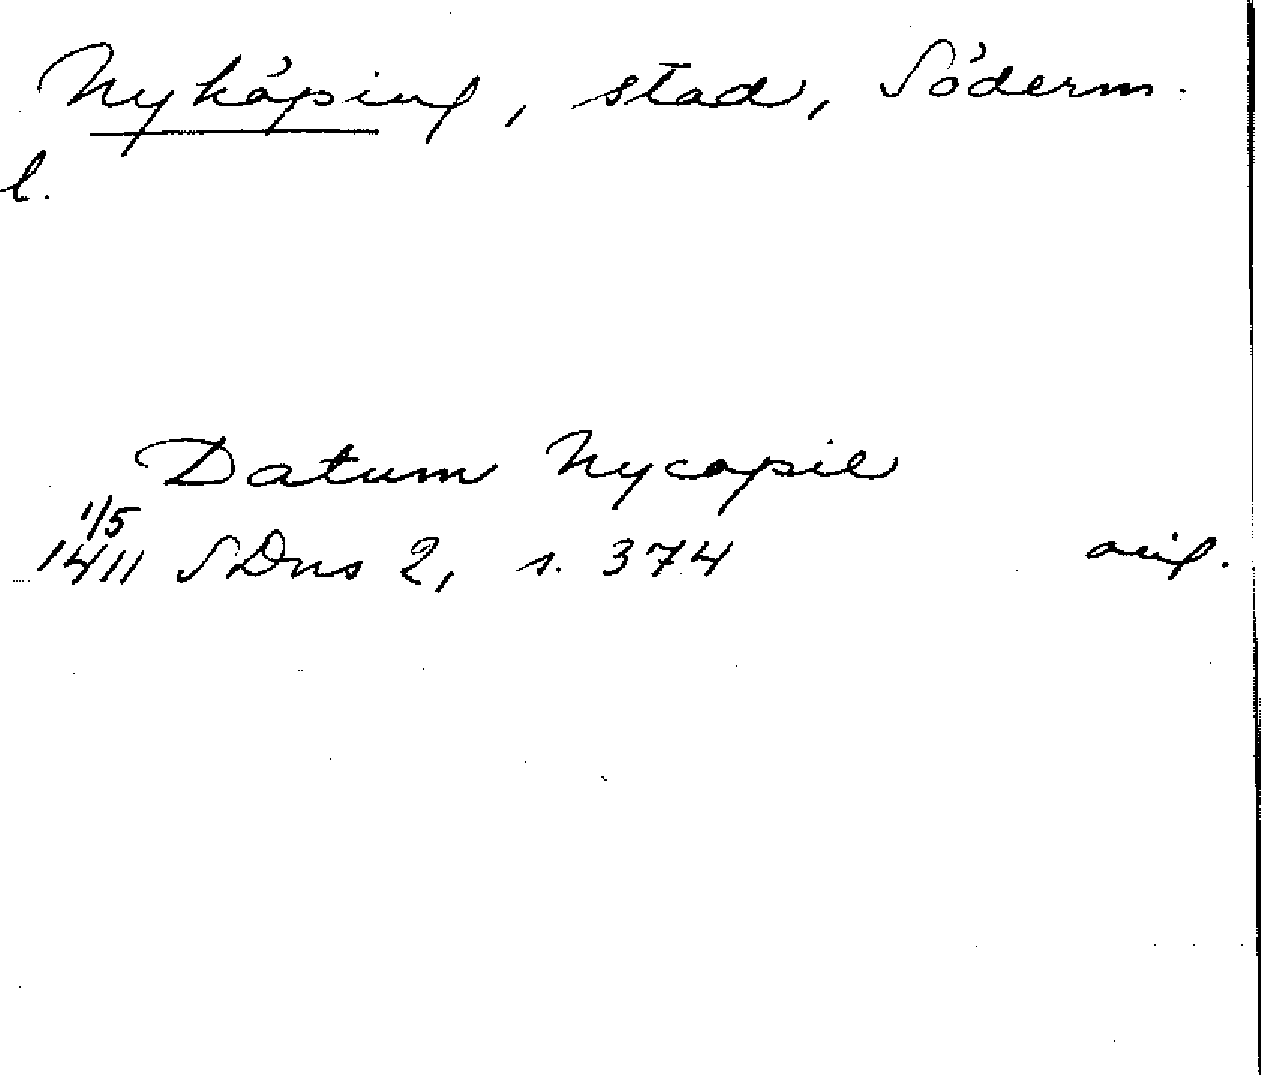 Nyköping, stad, Söderm.
l.
Datum Nycopie
1/5
1411 SDns 2, s. 374 orig.